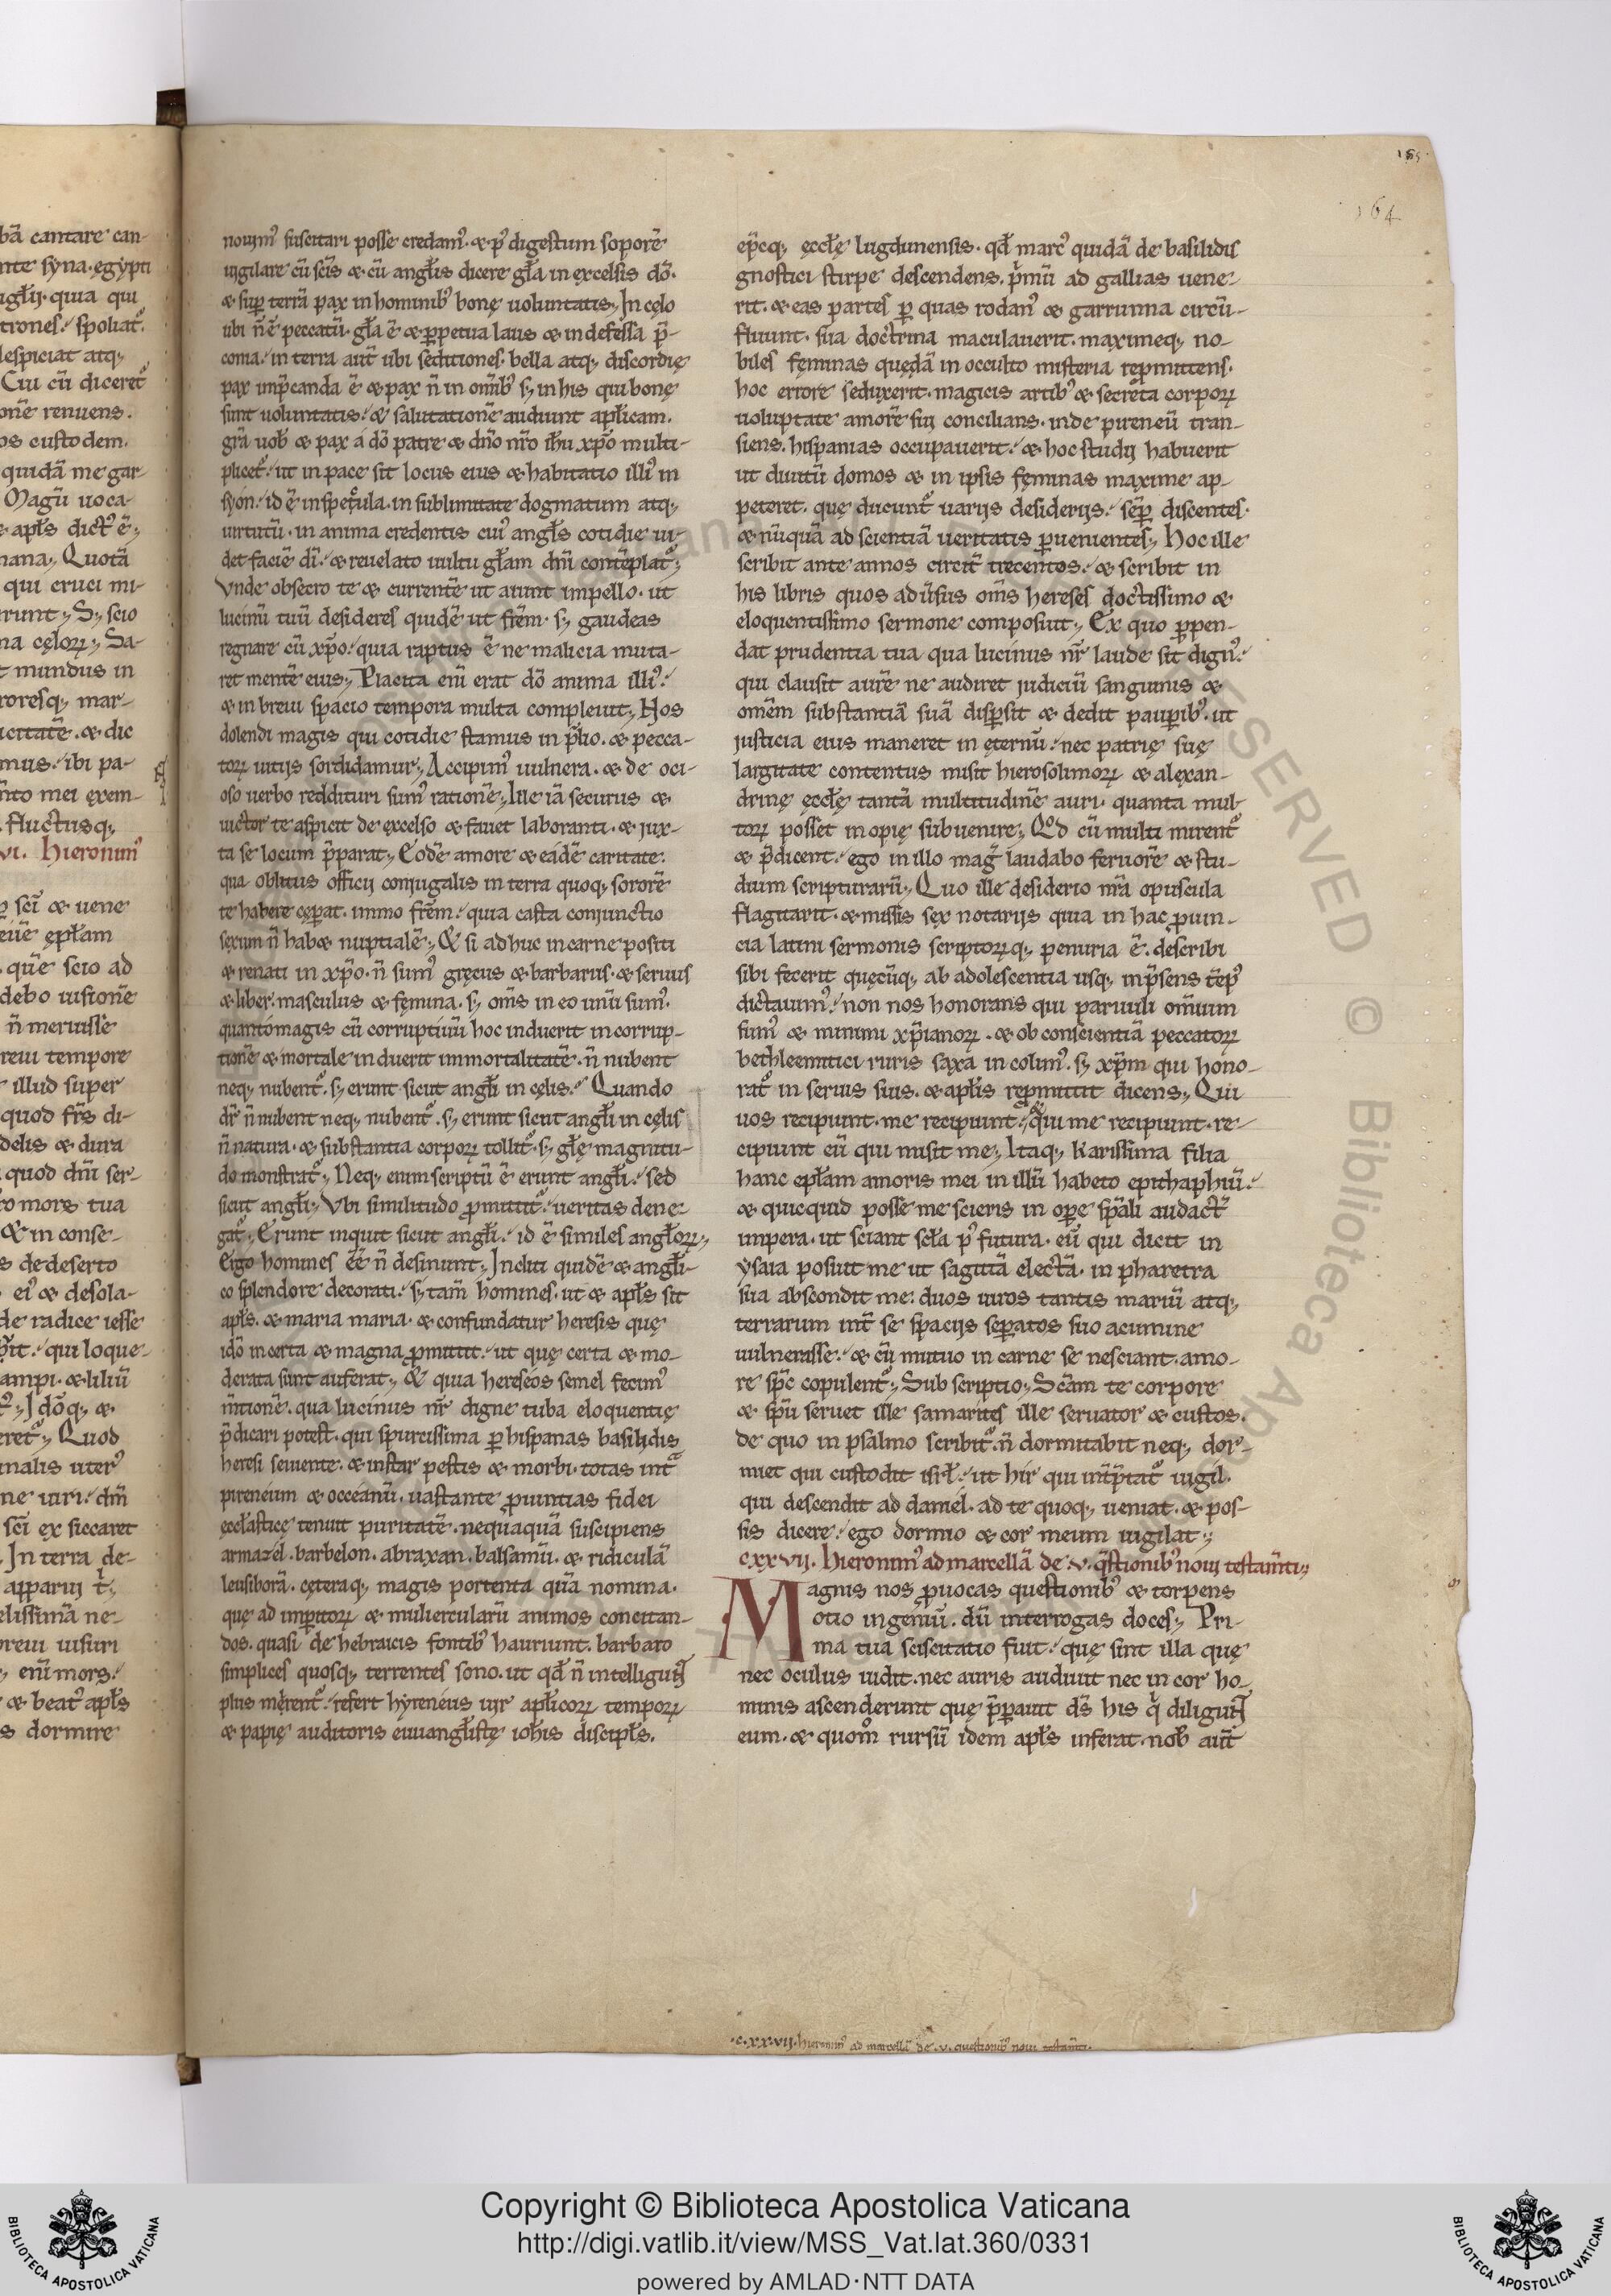 bã cantare can-
nte syna. ęgypti
ıgłij. quia qui
trones. spoliat᷑.
despiciat atq;
Cui cũ diceret᷑
onẽ renuens.
os custodem.
quidã me gar-
Magũ uoca-
apłs dict᷒ ẽ;
nana; Quotã
qui cruci mi-
runt; S; scio
na cęloꝝ; Sa-
t mundus in
roresq; mar-
icitatẽ. & dic
mus. ibi pa-
mei exem-
fluctusq;
vi. hieronim᷒
sc̃i & uene
epłam
quẽ scio ad
debo iusionẽ
ñ meruisse
reui tempore
illud super
quod fr̃s di-
delis & dura
quod dñi ser-
to mors tua
& in conse-
s de deserto
ei᷒ & desola-
de radice iesse
qui loque-
ampi. & liliũ
Idõq; &
eret᷑; Quod
malis uter᷒
ne uiri. dñi
sc̃i ex siccaret
In terra de-
apparuj
elissimã ne-
breui uisuri
enĩ mors.
& beat᷒ apłs
s dormire
nouim᷒ suscitari posse credam᷒. & p᷒ digestum soporẽ
uigilare cũ sc̃is & cũ angłis dicere gła in excelsis dõ.
& suꝑ terrã pax in hominib᷒ bonę uoluntatis; In cęlo
ubi ñ ẽ peccatũ. gła ẽ & ꝑpetua laus & indefessa p̃-
conia. in terra aut̃ ubi seditiones. bella atq; discordię
pax imp̃canda ẽ & pax ñ in om̃ib᷒ s; in his qui bonę
sunt uoluntatis. & salutationẽ audiunt apłicam.
gr̃a uob̃ & pax a dõ patre & dño nr̃o ihũ xp̃o multi-
plicet᷑. ut in pace sit locus eius & habitatio illi᷒ in
syon. id ẽ in specula. in sublimitate dogmatum atq;
uirtutũ. in anima credentis cui᷒ angłs cotidie ui-
det faciẽ dĩ. & reuelato uultu głam dñi contẽplat᷑;
Vnde obsecro te & currentẽ ut aiunt impello. ut
lucinũ tuũ desideres quidẽ ut fr̃em. s; gaudeas
regnare cũ xp̃o. quia raptus ẽ ne malicia muta-
ret mentẽ eius; Placita enĩ erat dõ anima illi᷒.
& in breui spacio tempora multa compleuit; Nos
dolendi magis qui cotidie stamus in p̃lio. & pecca-
toꝝ uitijs sordidamur; Accipim᷒ uulnera. & de oci-
oso uerbo reddituri sum᷒ rationẽ; Ille iã securus &
uictor te aspicit de excelso & fauet laboranti. & jux-
ta se locum p̃parat; Eodẽ amore & eãdẽ caritate.
qua oblitus officij conjugalis in terra quoq; sororẽ
te habere cęꝑat. immo fr̃em. quia casta conjunctio
sexum ñ hab& nuptialẽ; & si adhuc in carne positi
& renati in xp̃o. ñ sum᷒ gręcus & barbarus. & seruus
& liber. masculus & fęmina. s; om̃s in eo unũ sum᷒.
quantomagis cũ corruptiuũ hoc induerit incorrup-
tionẽ & mortale induerit immortalitatẽ. ñ nubent
neq; nubent᷑. s; erunt sicut angłi in cęlis. Quando
dr̃ ñ nubent neq; nubent᷑. s; erunt sicut angłi in cęlis
ñ natura. & substantia corpoꝝ tollit᷑. s; głę magnitu-
do monstrat᷑; Neq; enim scriptũ ẽ erunt angłi. sed
sicut angłi; Vbi similitudo ꝓmittit᷑. ueritas dene-
gat᷑; Erunt inquit sicut angłi. id ẽ similes angłoꝝ;
Ergo homines eẽ ñ desinunt; Incliti quidẽ & angłi-
co splendore decorati. s; tam̃ homines. ut & apłs sit
apłs. & maria maria. & confundatur heresis quę
idõ incerta & magna ꝓmittit. ut quę certa & mo-
derata sunt auferat; & quia hereseos semel fecim᷒
m̃tionẽ. qua lucinus nr̃ digne tuba eloquentię
p̃dicari potest. qui spurcissima ꝑ hispanas basilidis
heresi seuiente. & instar pestis & morbi. totas int᷑
pireneum & occeanũ. uastante ꝓuintias fidei
ęccłasticę tenuit puritatẽ. nequaquã suscipiens
armazel. barbelon. abraxan. balsamũ. & ridiculã
leusiborã. cęteraq; magis portenta quã nomina.
quę ad imꝑitoꝝ & muliercularũ animos concitan-
dos. quasi de hebraicis fontib᷒ hauriunt. barbaro
simplices quosq; terrentes sono. ut qđ ñ intelligunt
plus mirent᷑. refert hyreneus uir apłicoꝝ tempoꝝ
& papię auditoris euuangłistę ioh̃is discipłs.
ep̃cq; ęccłę lugdunensis. qđ marc᷒ quidã de basilidis
gnostici stirpe descendens. p̃mũ ad gallias uene-
rit. & eas partes ꝑ quas rodan᷒ & garrunna circũ-
fluunt. sua doctrina maculauerit. maximeq; no-
biles fęminas quędã in occulto misteria repmittens.
hoc errore seduxerit. magicis artib᷒ & secreta corpoꝝ
uoluptate amorẽ sui concilians. inde pireneũ tran-
siens. hispanias occupauerit. & hoc studij habuerit
ut diuitũ domos & in ipsis fęminas maxime ap-
peteret. quę ducunt᷑ uarijs desiderijs. semꝑ discentes.
& nũquã ad scientiã ueritatis ꝑuenientes; Hoc ille
scribit ante annos circit̃ trecentos. & scribit in
his libris quos aduersus om̃s hereses doctissimo &
eloquentissimo sermone composuit; Ex quo ꝑpen-
dat prudentia tua qua lucinus nr̃ laude sit dign᷒.
qui clausit aurẽ ne audiret judiciũ sanguinis &
omẽm substantiã suã disꝑsit & dedit pauꝑib᷒. ut
justicia eius maneret in ęternũ. nec patrię suę
largitate contentus misit hierosolimoꝝ & alęxan-
drinę ęccłę tantã multitudinẽ auri. quanta mul-
toꝝ posset inopię subuenire; Qđ cũ multi mirent᷑
& p̃dicent. ego in illo mag̃ laudabo feruorẽ & stu-
dium scripturarũ; Quo ille desiderio nr̃a opuscula
flagitarit. & missis sex notarijs quia in hac ꝓuin-
cia latini sermonis scriptoꝝq; penuria ẽ. describi
sibi fecerit quęcũq; ab adolescentia usq; in p̃sens tẽp᷒
dictauim᷒. non nos honorans qui paruuli om̃ium
sum᷒ & minimi xp̃ianoꝝ. & ob conscientiã peccatoꝝ
bethleemitici ruris saxa incolim᷒. s; xp̃m qui hono-
rat᷑ in seruis suis. & apłis reꝓmittit dicens; Qui
uos recipiunt. me recipiunt. & qui me recipiunt. re-
cipiunt eũ qui misit me; Itaq; karissima filia
hanc epłam amoris mei in illũ habeto epithaphiũ.
& quicquid posse me scieris in oꝑe sp̃ali audact̃
impera. ut sciant scła p᷒ futura. eũ qui dicit in
ysaia posuit me ut sagittã electã. in pharetra
sua abscondit me. duos uiros tantis mariũ atq;
terrarum int̃ se spacijs seꝑatos suo acumine
uulnerasse. & cũ mutuo in carne se nesciant. amo-
re sp̃c copulent᷑; Sub scriptio; Sc̃am te corpore
& sp̃u seruet ille samarites ille seruator & custos.
de quo in psalmo scribit᷑. ñ dormitabit neq; dor-
miet qui custodit isrł. ut hir qui int̃p̃tat᷑ uigil.
qui descendit ad daniel. ad te quoq; ueniat. & pos-
sis dicere. ego dormio & cor meum uigilat;
cxxvij. hieronim᷒ ad marcellã de .v. q̃stionib᷒ noui testam̃ti;
Magnis nos ꝓuocas questionib᷒ & torpens
otio ingeniũ. dũ interrogas doces; Pri-
ma tua sciscitatio fuit. quę sint illa quę
nec oculus uidit. nec auris audiuit nec in cor ho-
minis ascenderunt quę p̃parauit ds̃ his q̃ diligunt
eum. & quom̃ rursũ idem apłs inferat. nob̃ aut̃
.c.xx.vij. hieronim᷒ ad marcellã de .v. questionib᷒ noui testam̃ti.
165
164
Copyright © Biblioteca Apostolica Vaticana
http://digi.vatlib.it/view/MSS_Vat.lat.360/0331
powered by AMLAD·NTT DATA
BIBLIOTECA APOSTOLICA VATICANA
BIBLIOTECA APOSTOLICA VATICANA